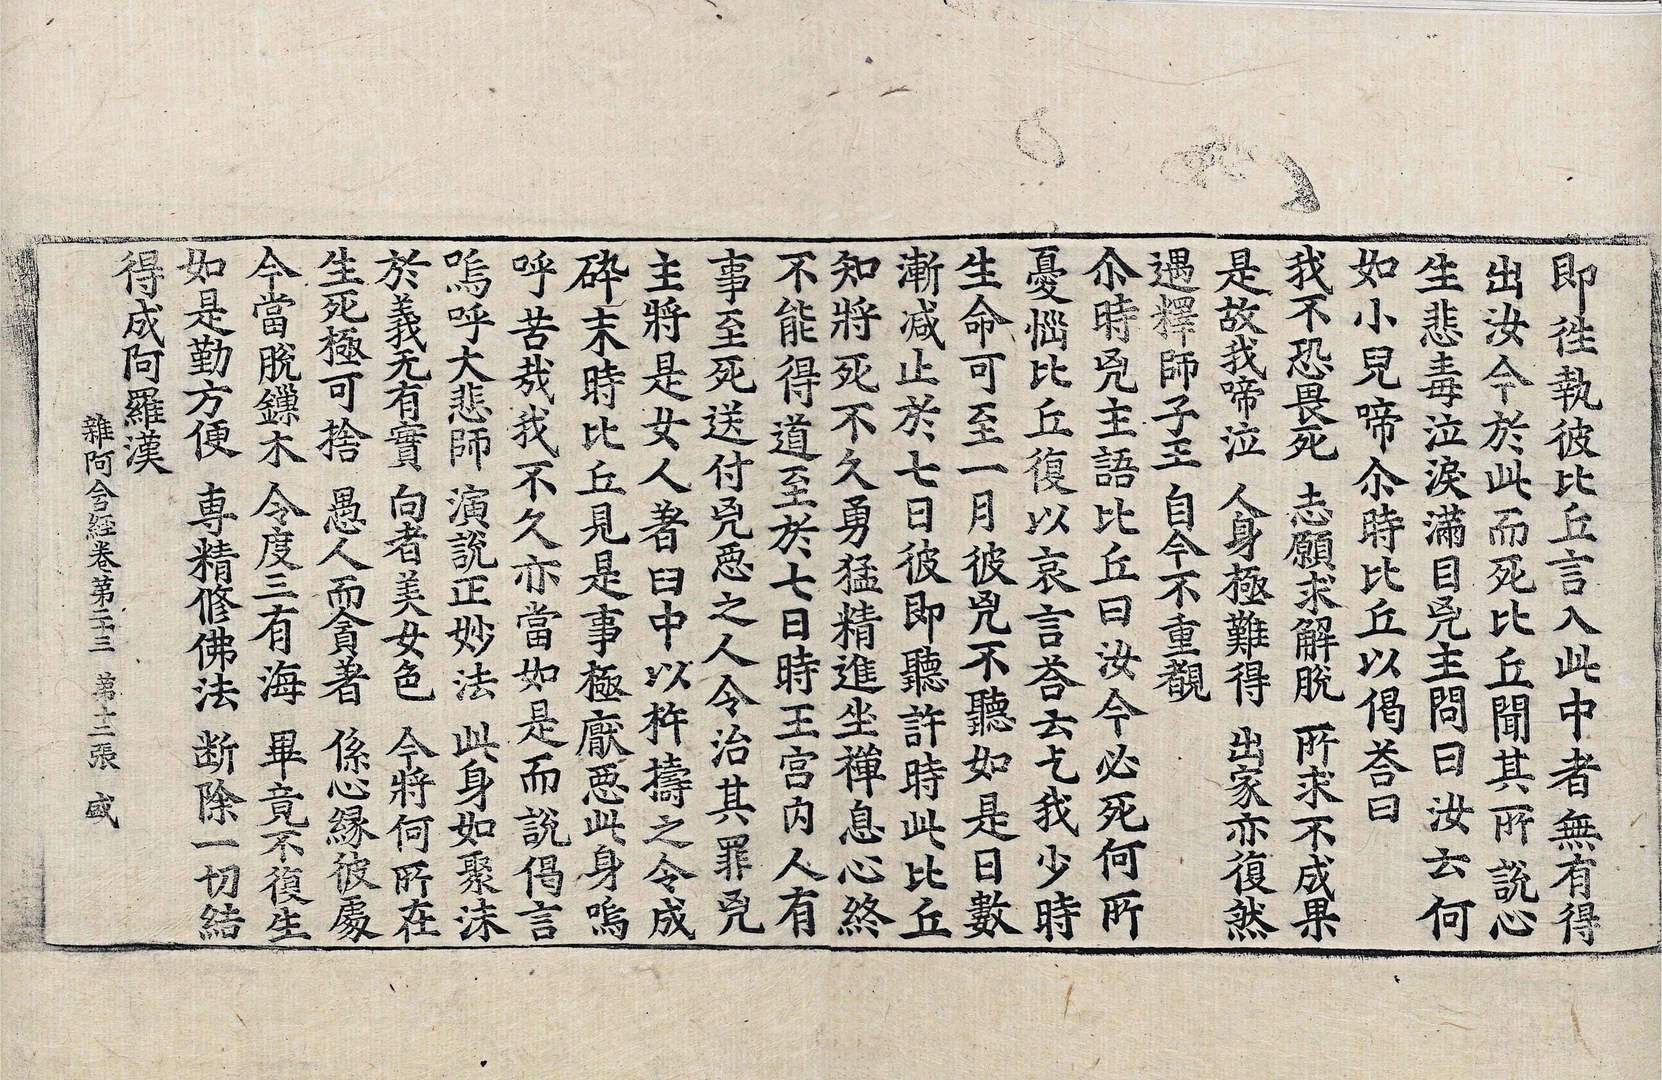 即徃執彼比丘言入此中者無有得
出汝今於此而死比丘聞其所說心
生悲毒泣淚滿目兇主問曰汝云何
如小兒啼尒時比丘以偈荅曰
我不恐畏死　志願求解脫　所求不成果
是故我啼泣　人身極難得　出家亦復然
遇釋師子王　自今不重覩
尒時兇主語比丘曰汝今必死何所
憂惱比丘復以哀言荅云乞我少時
生命可至一月彼兇不聽如是日數
漸减止於七日彼即聽許時此比丘
知將死不久勇猛精進坐禪息心終
不能得道至於七日時王宮內人有
事至死送付兇惡之人令治其罪兇
主將是女人著臼中以杵擣之令成
碎末時比丘見是事極厭惡此身嗚
呼苦哉我不久亦當如是而說偈言
嗚呼大悲師　演說正妙法　此身如聚沫
於義无有實　向者美女色　今將何所在
生死極可捨　愚人而貪著　係心緣彼處
今當脫鏁木　令度三有海　畢竟不復生
如是勤方便　專精修佛法　断除一切結
得成阿羅漢
雜阿含經卷第二十三　第十二張　盛